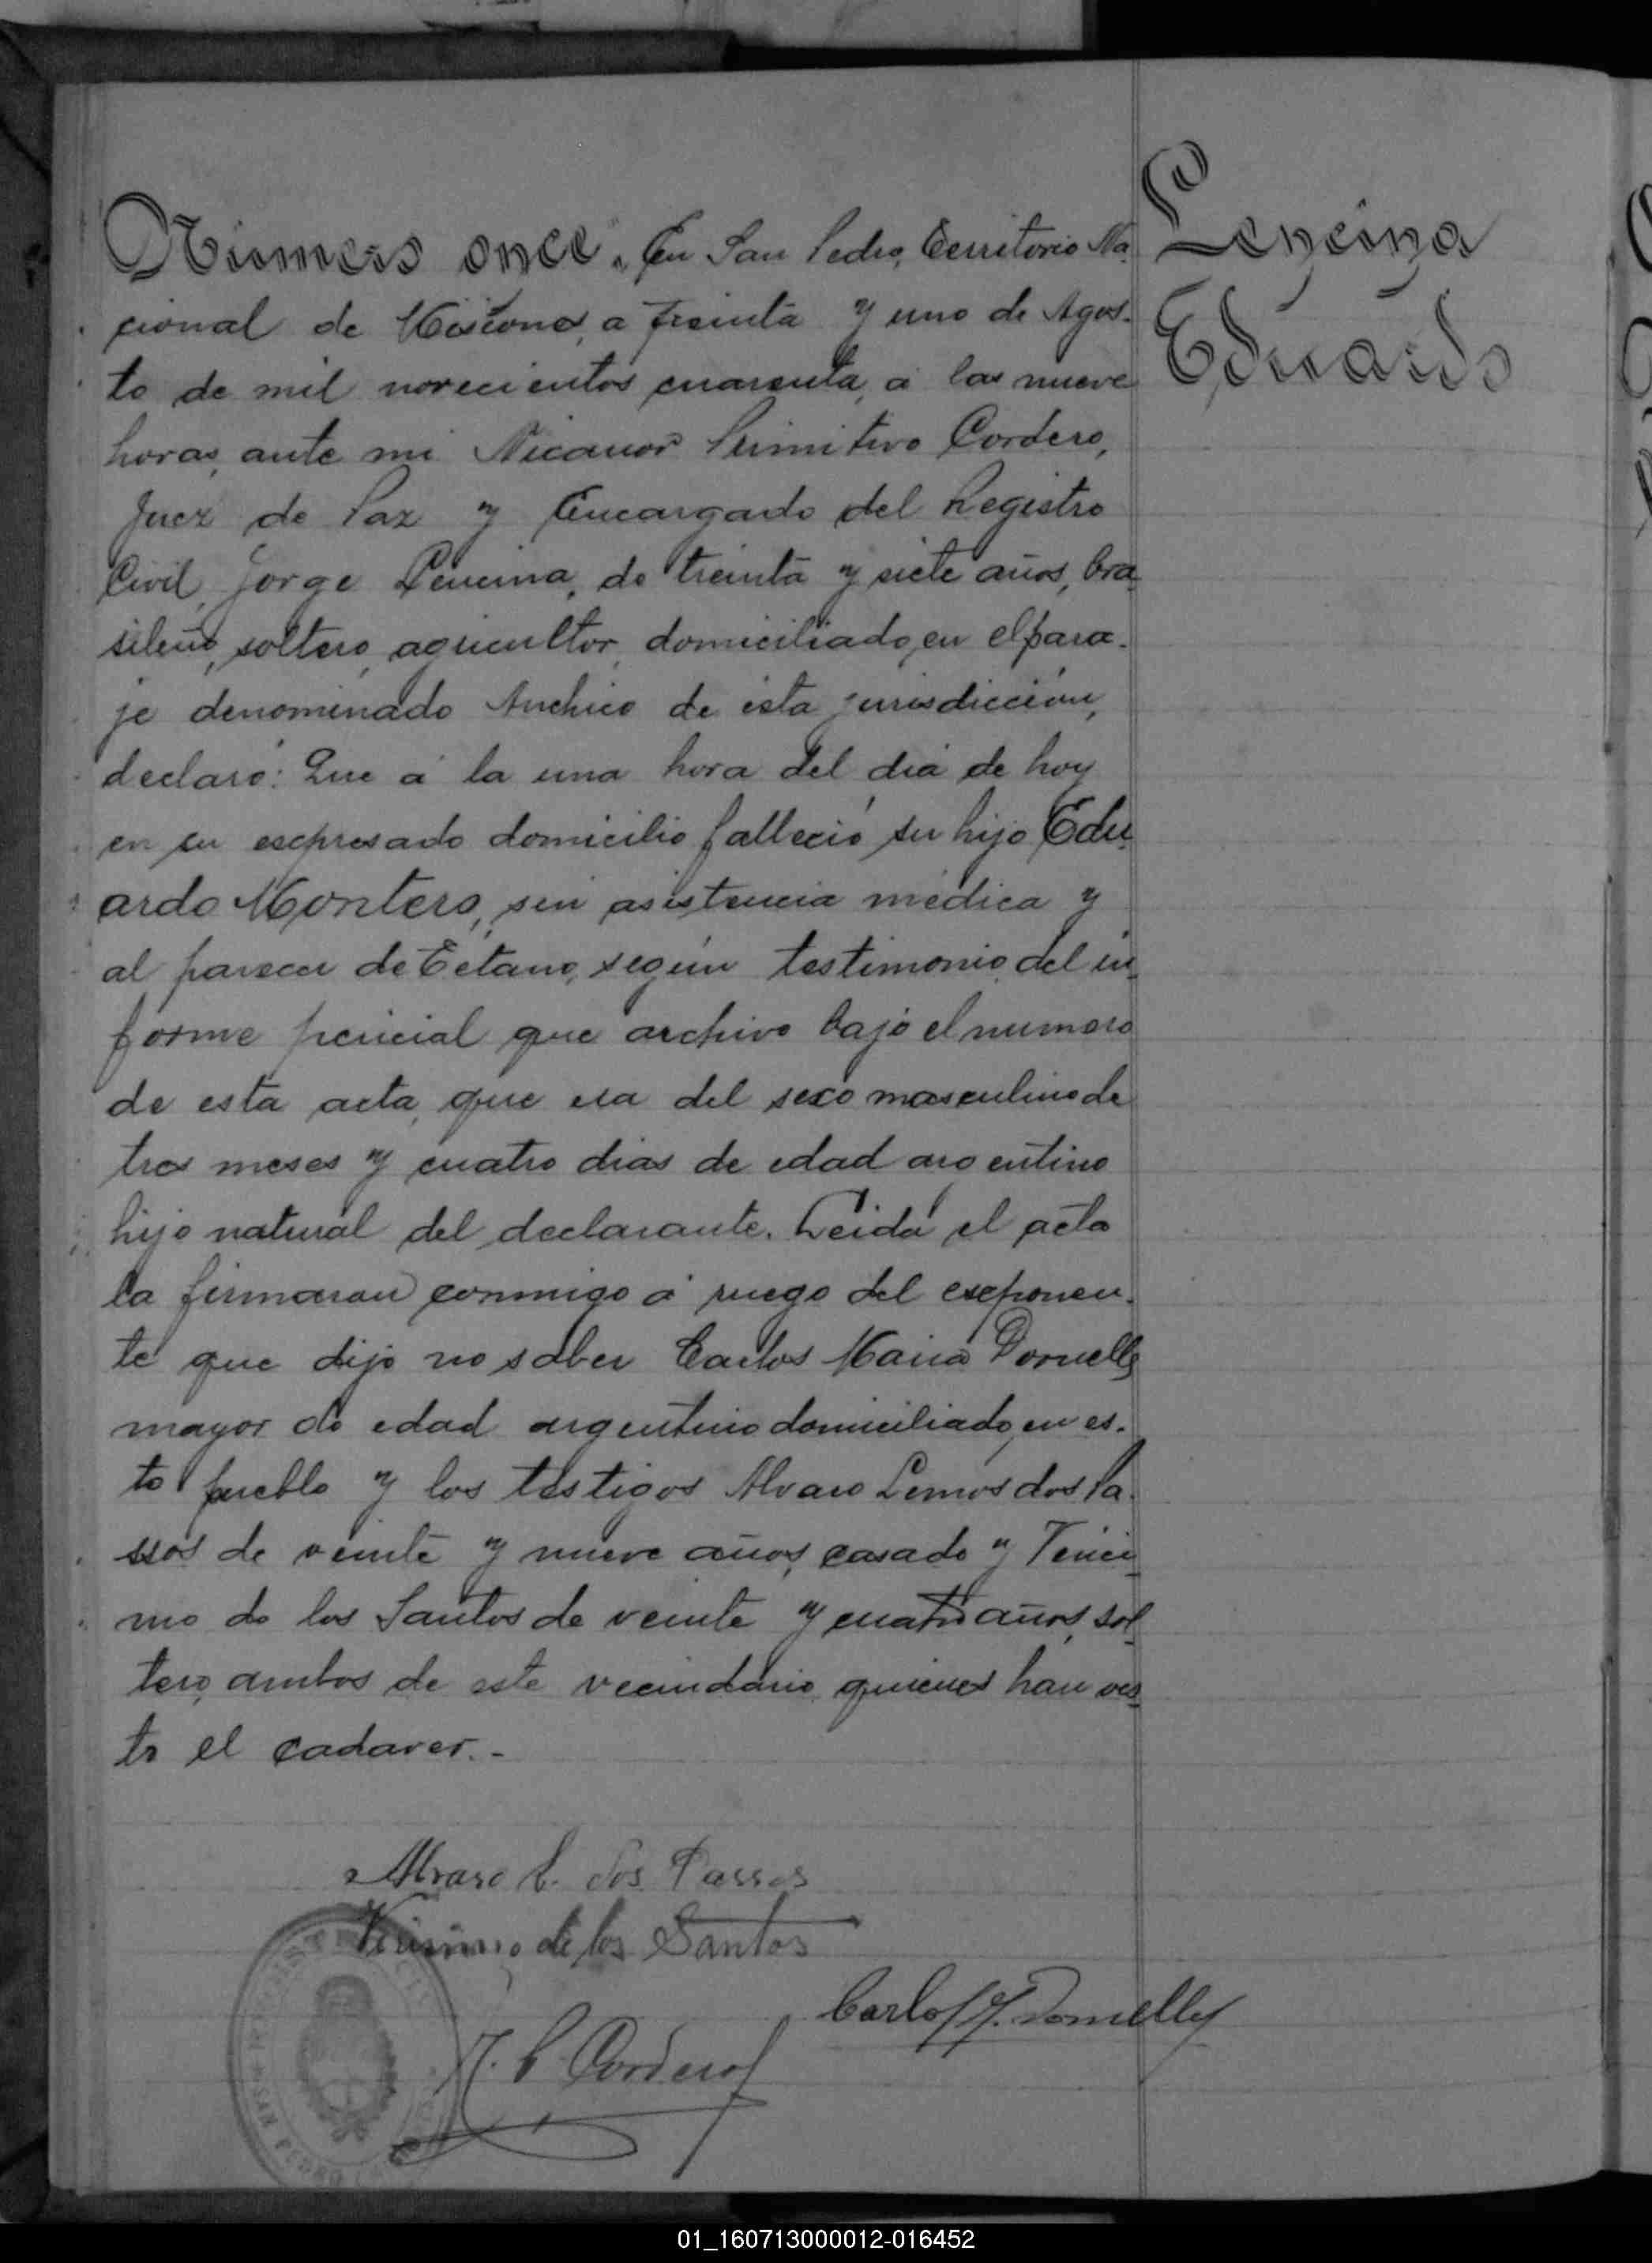 Número once. En San Pedro, Territorio Na-
cional de Misiones, a treinta y uno de Agos-
to de mil novecientos cuarenta, á las nueve
horas, ante mi Nicanor Primitivo Cordero,
Juez de Paz y Encargado del Registro
Civil, Jorge Lencina, de treinta y siete años, bra-
sileño, soltero, agricultor, domiciliado, en el para-
je denominado Anchico de ésta jurisdicción,
declaró: Que á la una hora del dia de hoy
en su expresado domicilio falleció su hijo Edu-
ardo Montero, sin asistencia médica y
al parecer de Tétano, según testimonio del in-
forme pericial que archivo bajo el numero
de esta acta, que era del sexo masculino de
tres meses y cuatro dias de edad argentino
hijo natural del declarante. Leida el acta
la firmaran conmigo á ruego del exponen-
te que dijo no saber Carlos Maria Dornelle
mayor de edad argentino domiciliado, en es-
te pueblo y los testigos Alvaro Lemos dos Pa-
ssos de veinte y nueve años, casado y Verici-
mo de los Santos de veinte y cuatro años, sol-
tero, ambos de este vecindario, quienes han vis-
to el cadaver.-
Lencina
Eduardo
Alvaro L. dos Passos
de los Santos
Carlos M. Dornelles
N. P. Cordero
01_160713000012-016452